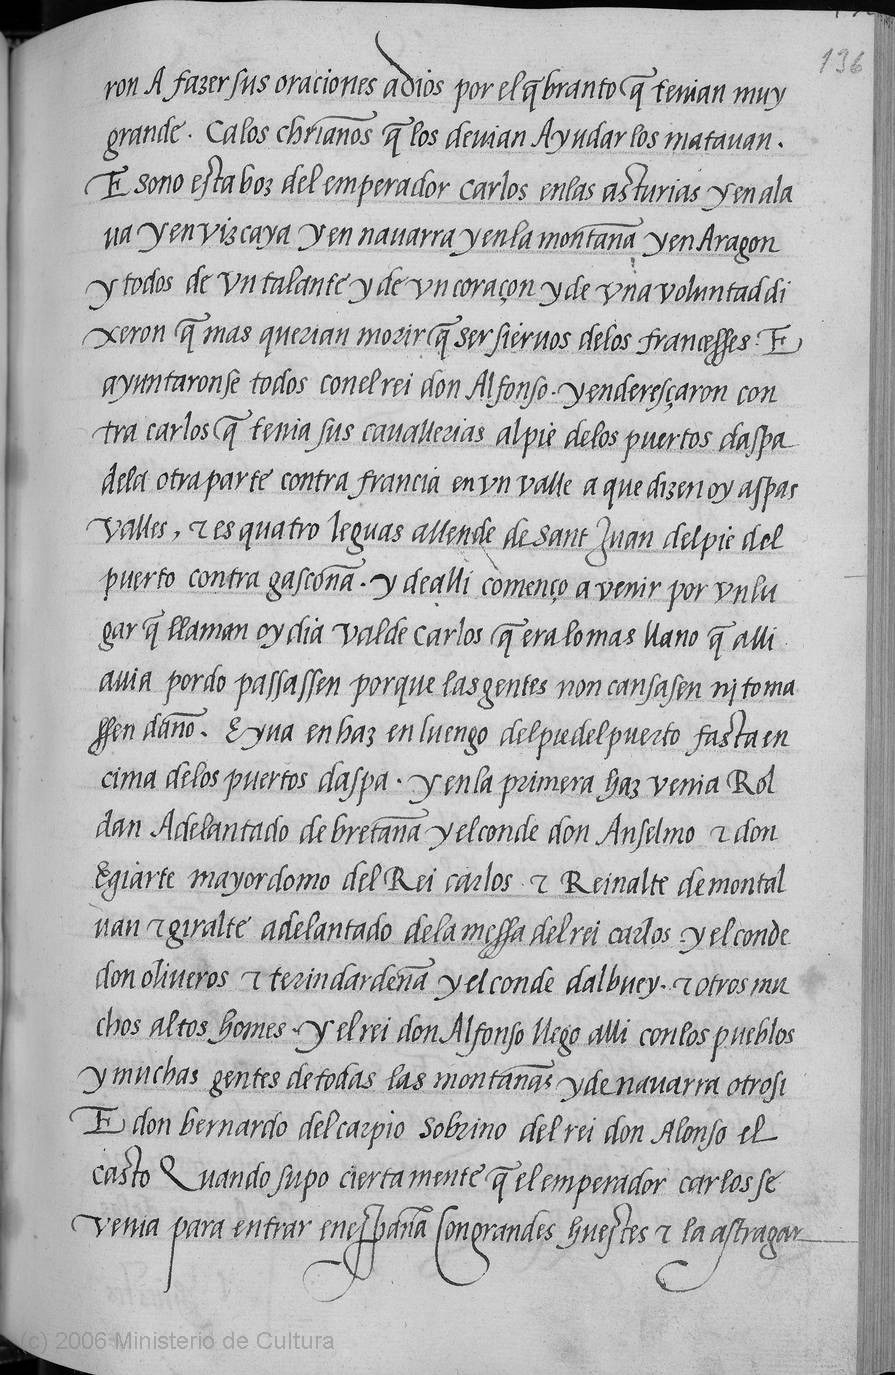 136
ron A fazer sus oraciones a dios por el q̃branto q̃ tenian muy
grande. Ca los chr̃ianos q̃ los deuian Ayudar los matauan.
E sono esta boz del emperador carlos en las asturias y en ala
ua y en vizcaya y en nauarra y en la montaña y en Aragon
y todos de vn talante y de vn coraçon y de vña voluntad di
xeron q̃ mas querian morir q̃ ser sieruos de los francesses. E
ayuntaronse todos con el rei don Alfonso. y enderesçaron con
tra carlos q̃ tenia sus cauallerias al pie de los puertos daspa
dela otra parte contra francia en vn valle a que dizen oy aspas
valles, τ es quatro leguas allende de sant Juan del pie del
puerto contra gascoña. y de alli començo a venir por vn lu
gar q̃ llaman oy dia val de carlos q̃ era lo mas llano q̃ alli
auia por do passassen porque las gentes non cansasen nj toma
ssen daño. E yua en haz en luengo del pie del puerto fasta en
cima de los puertos daspa. y en la primera haz venia Rol
dan Adelantado de bretaña y el conde don Anselmo τ don
Egiarte mayordomo del Rei carlos. τ Reinalte de montal
uan τ giralte adelantado de la messa del rei carlos. y el conde
don oliueros τ terin dardeña y el conde dalbuey. τ otros mu
chos altos homes. y el rei don Alfonso llego alli con los pueblos
y muchas gentes de todas las montañas y de nauarra otrosi
E don bernardo del carpio sobrino del rei don Alonso el
casto Quando supo ciertamente q̃ el emperador carlos se
venia para entrar en españa con grandes huestes τ la astragar
(c) 2006 Ministerio de Cultura